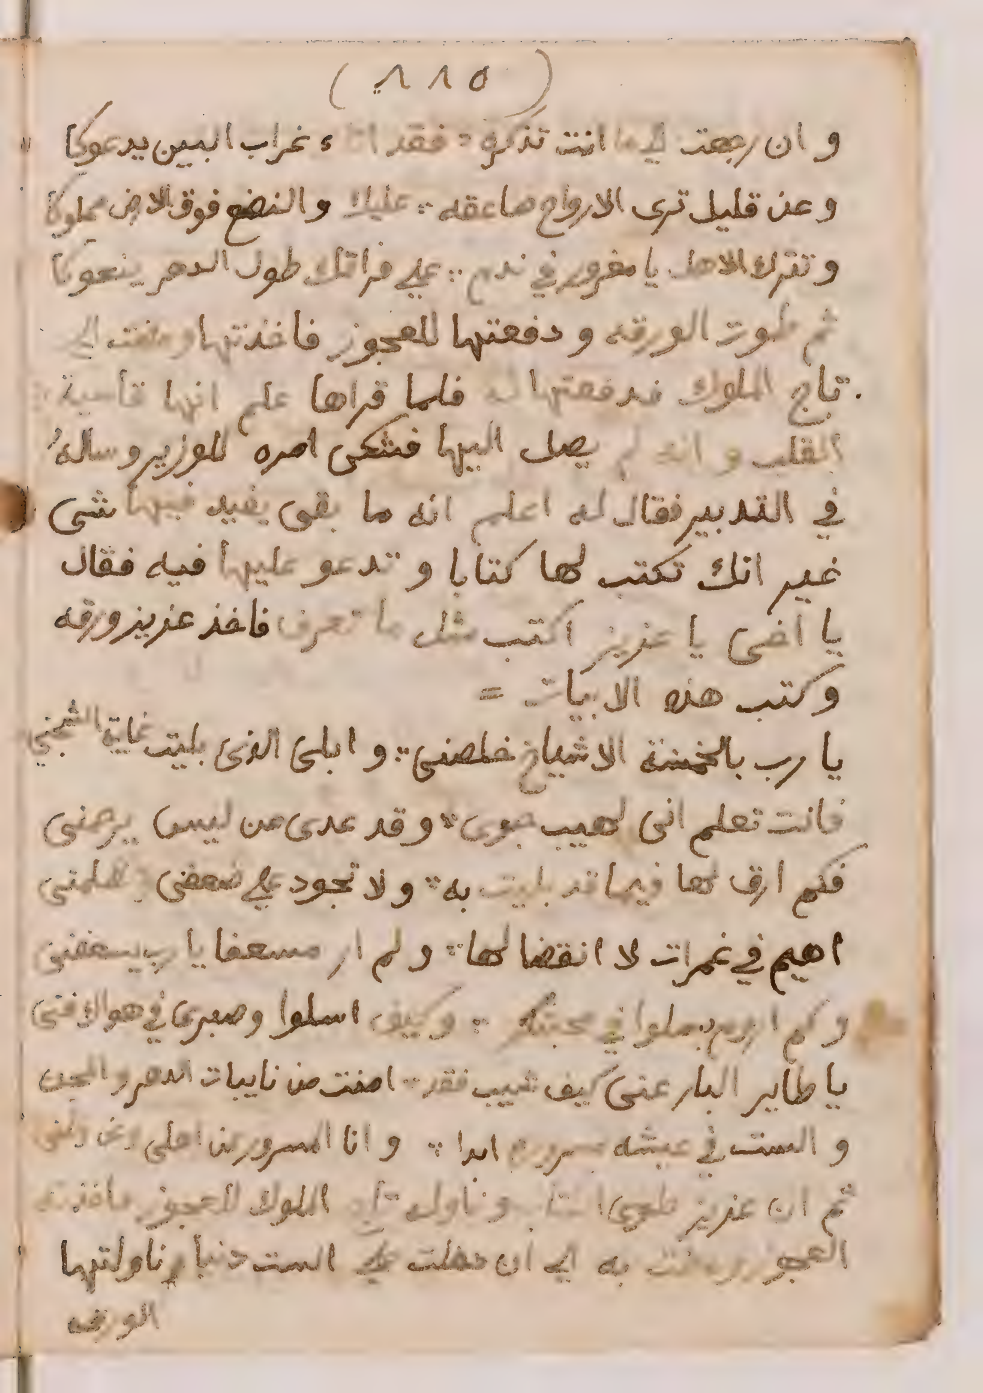 (١١٥)
و ان رجعت الي ما انت تذكره ؞ فقد اتاء غراب البين يدعوكا
و عن قليل ترى الارواح صاعقه ؞ عليك والنضع فوق الارض مملوكا
و تترك الاهل يا مغرور في ندم ؞ علي فراقك طول الدهر ينعوكا
ثم طوت الورقه و دفعتها للعجوز فاخذتها ومضت الي
تاج الملوك فدفعتها له فلما قراها علم انها قاسية
القلب و انه لم يصل اليها فشكى امره للوزير وساله
في التدبير فقال له اعلم انه ما بقى يفيد فيها شى
غير انك تكتب لها كتابا و تدعو عليها فيه فقال
يا اخى يا عزيز اكتب مثل ما تعرف فاخذ عزيز ورقه
وكتب هذه الابيات =
يا رب بالخمسة الاشياخ خلصنى ؞ و ابلى الذى بليت غاية الشجني
فانت تعلم انى لهيب جوى ؞ وقد عدى من ليس يرحمنى
فكم ارق لها فيما قد بليت به ؞ ولا تجود علي ضعفى و تظلمنى
اهيم في غمرات لا انقضا لها ؞ ولم ار مسعفا يا رب يسعفنى
وكم اروم سلوا في محبتكم ؞ وكيف اسلوا وصبرى في هواك فنى
يا طاير البار عنى كيف شيب فقد ؞ امنت من نايبات الدهر و المحن
و الست في عيشه مسروره ابدا ؞ و انا المسور عن اهلى وعن وطنى
ثم ان عزيز طوى الكتاب و ناوله تاج الملوك للعجوز فاخذته
العجوز ومضت به الي ان دخلت علي الست دنيا وناولتها
الورقه